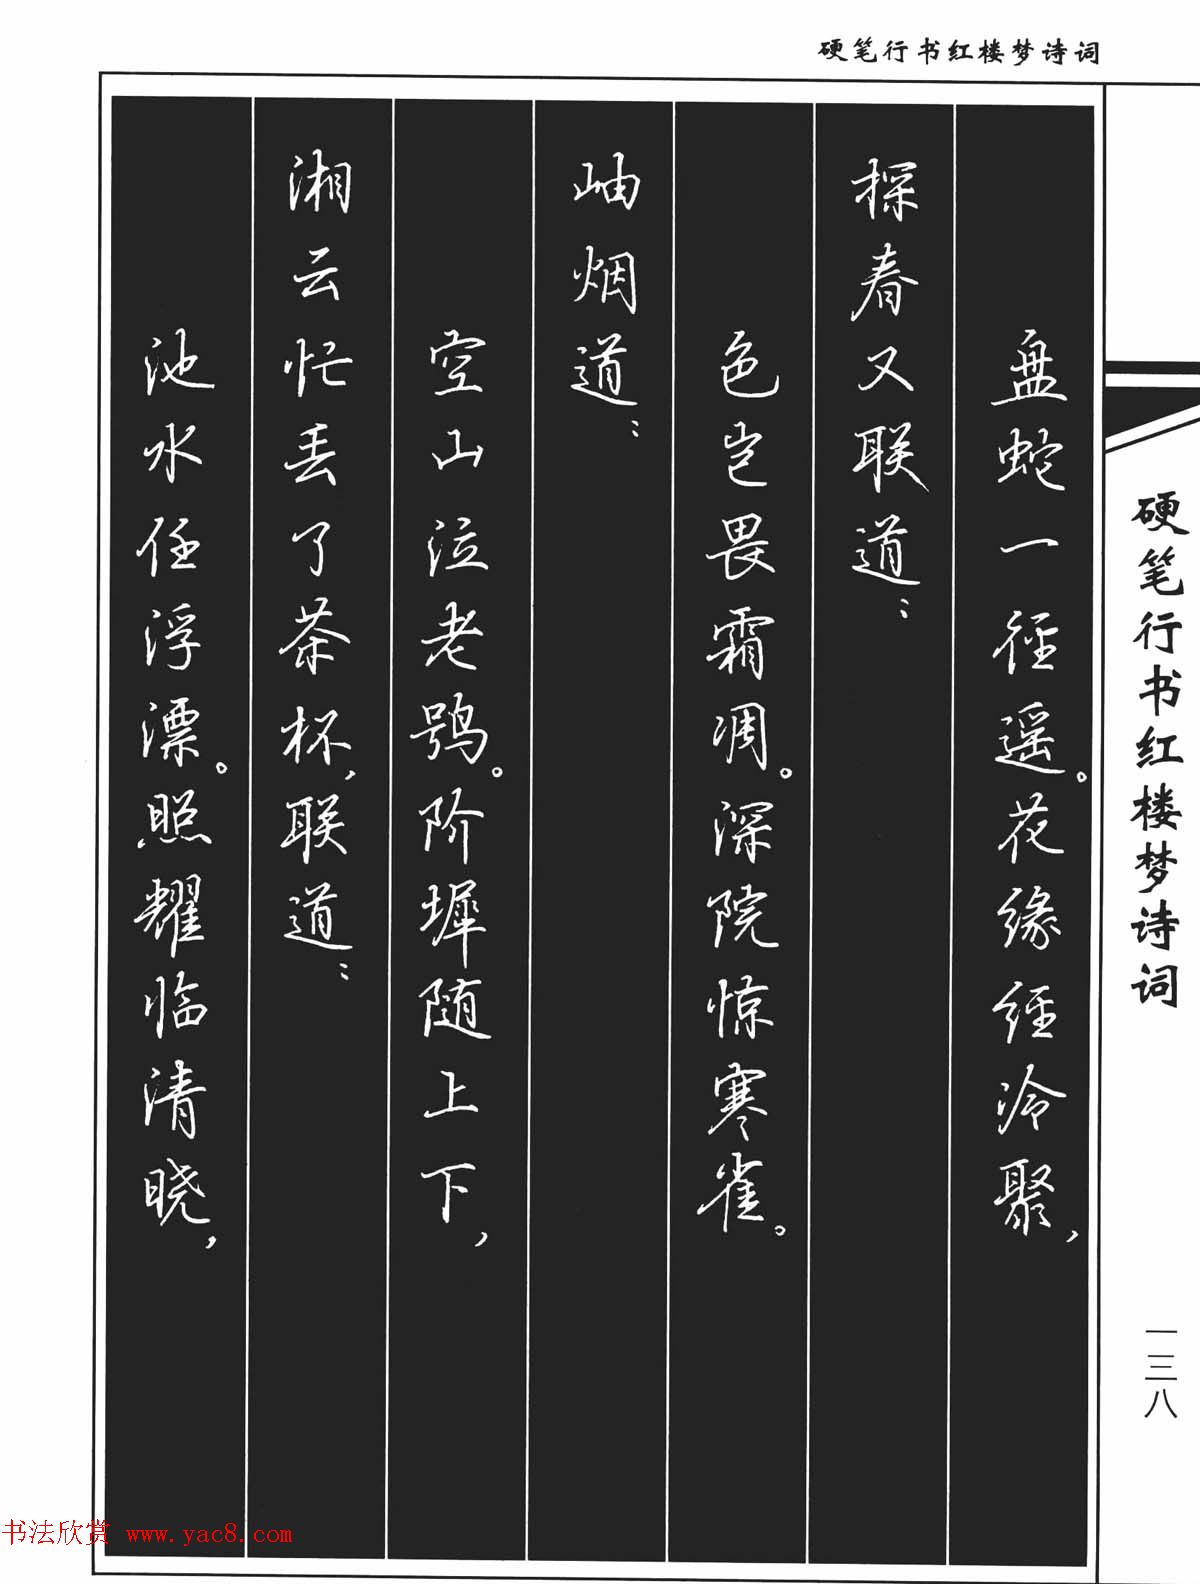 硬笔行书红楼梦诗词
盘蛇一径遥。花缘经冷聚，
探春又联道：
色岂畏霜凋。深院惊寒雀。
岫烟道：
空山泣老鸮。阶墀随上下，
湘云忙丢了茶杯，联道：
池水任浮漂。照耀临清晓，
硬笔行书红楼梦诗词
一三八
书法欣赏 www.yac8.com